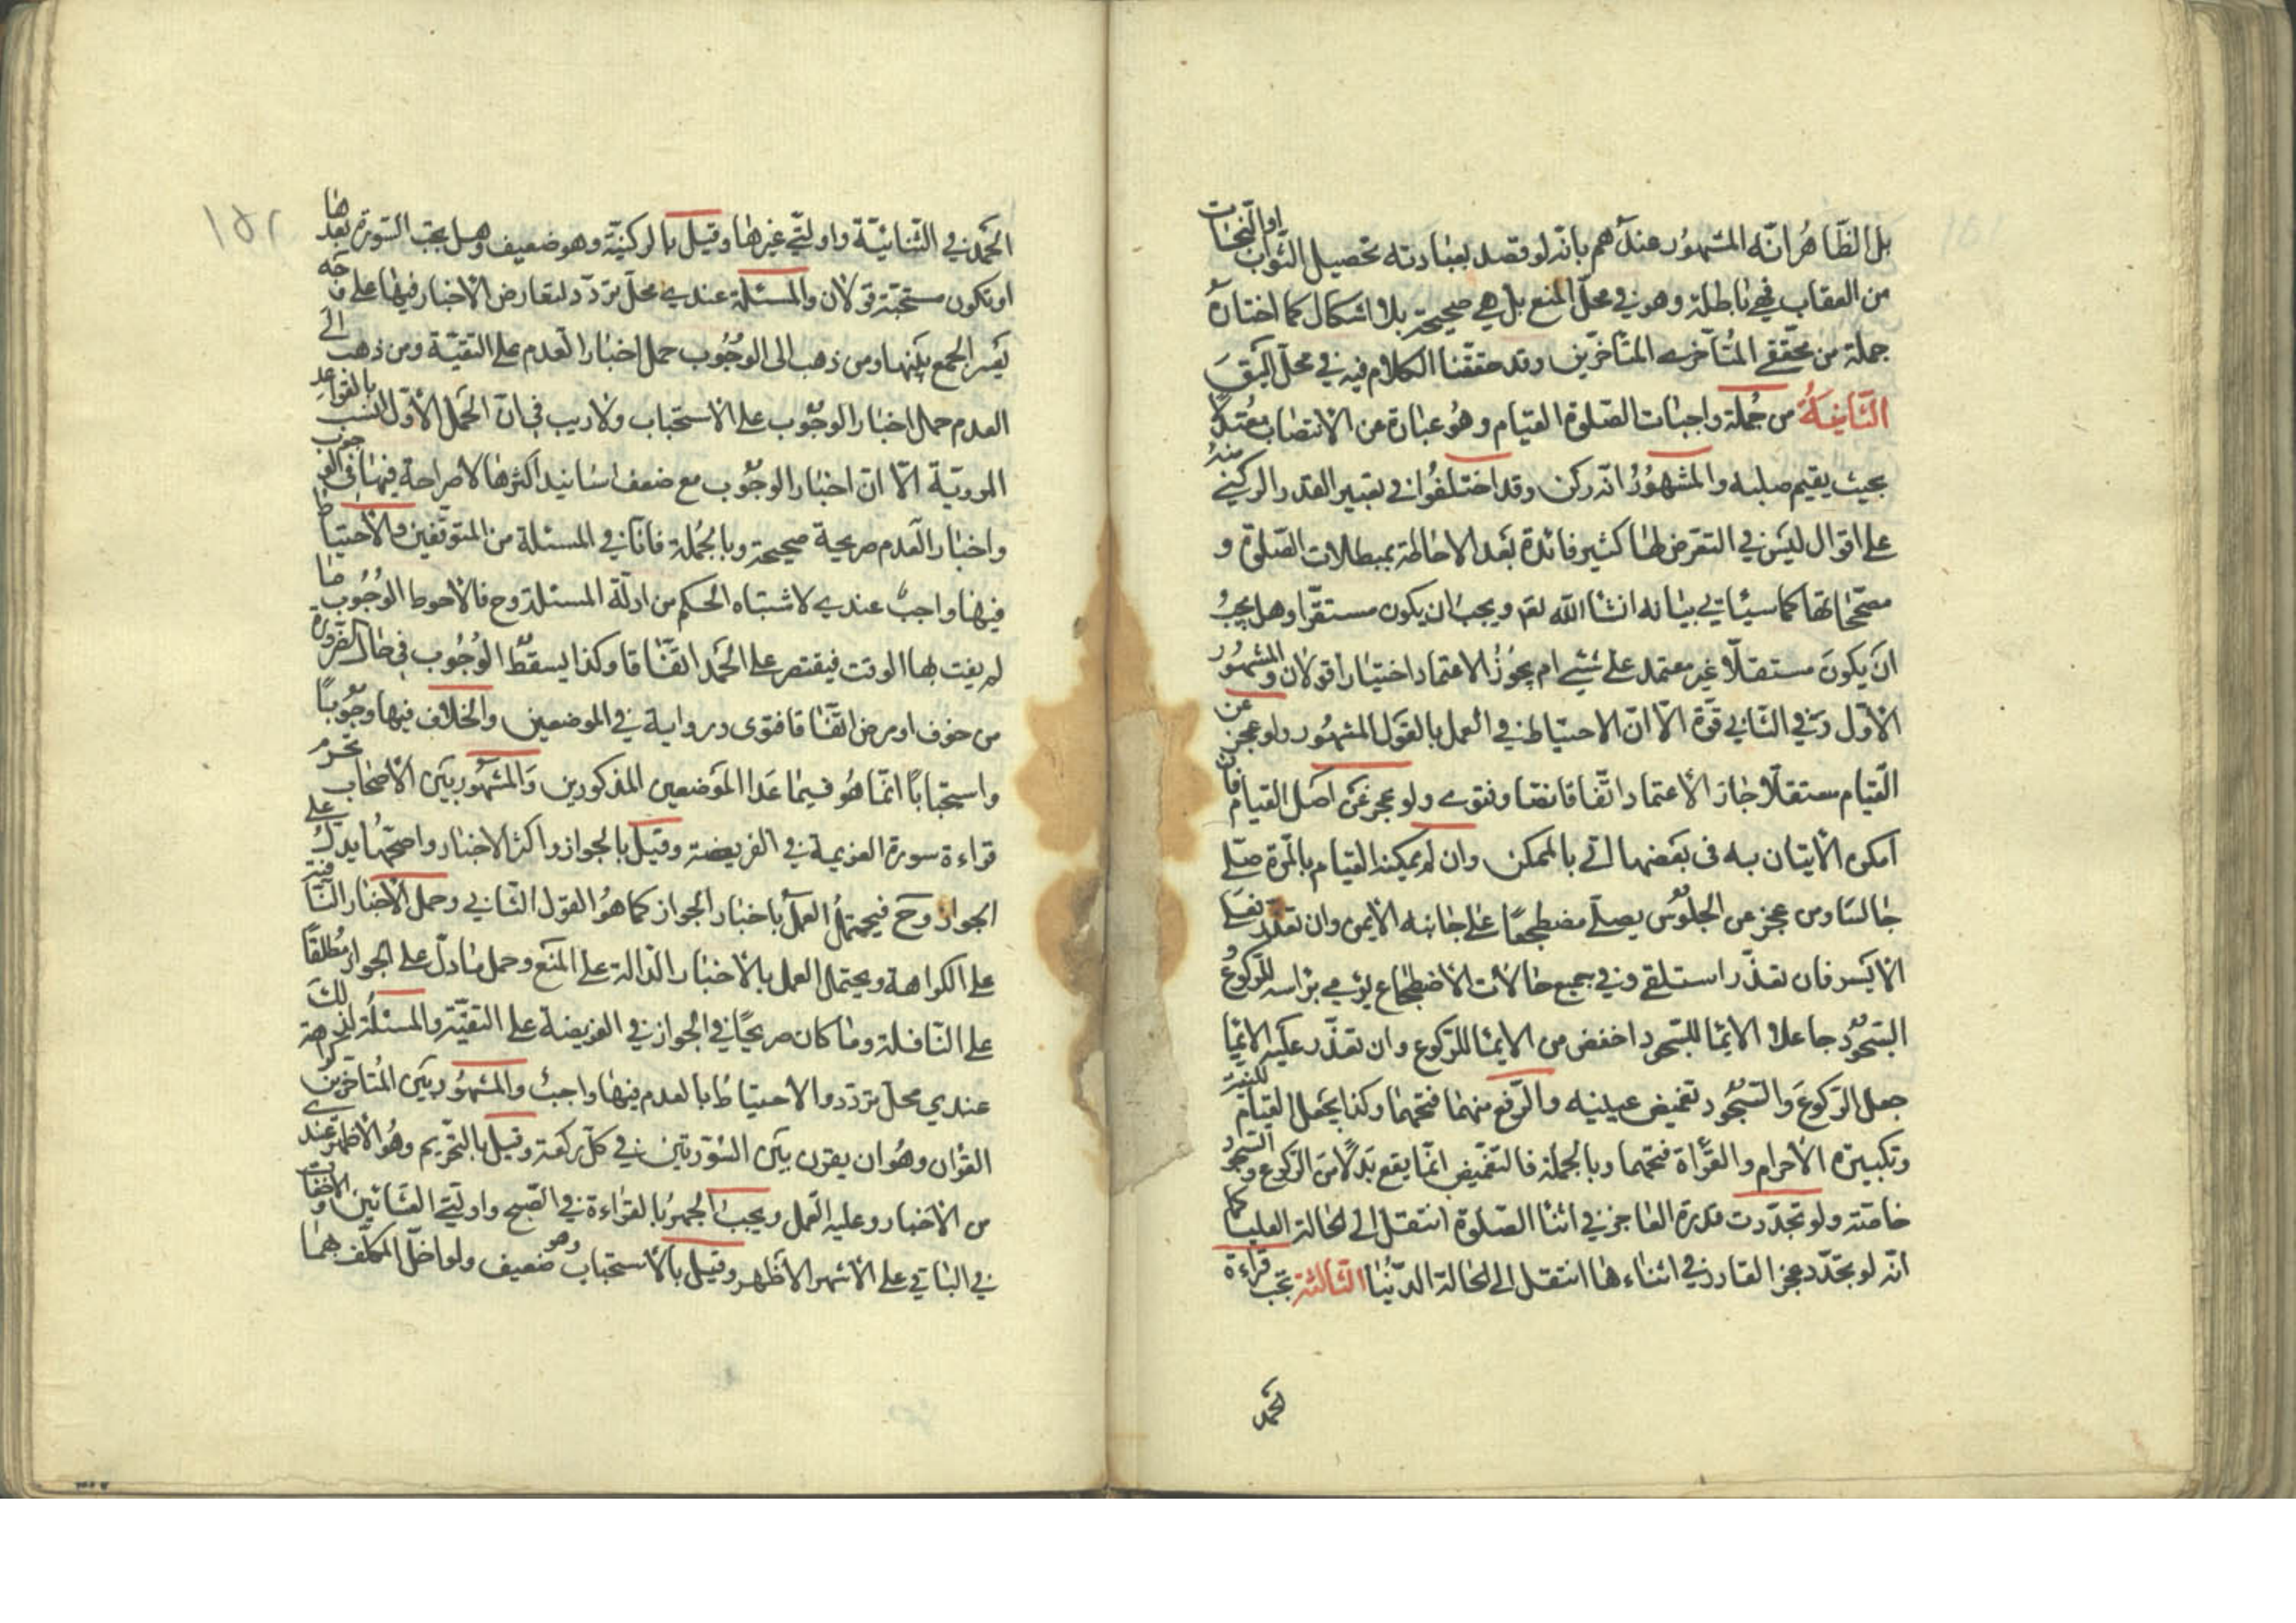 بل الظاهر انه المشهور عندهم بانه لو قصد بعبادته تحصيل الثواب او النجات
من العقاب فهي باطلة وهو في محل المنع بل هي صحيحة بلا اشكال كما اختاره
جملة من محققي المتأخرى المتأخرين وقد حققنا الكلام فيه في محل اليق
الثانية من جملة واجبات الصلوة القيام وهو عبارة عن الانتصاب معتدلا
بحيث يقيم صلبه والمشهور انه ركن وقد اختلفوا في تعبير القدر الركني منه
على اقوال ليس في التعرض لها كثير فائدة بعد الاحاطة بمبطلات الصلوة و
مصححاتها كما سيأتي بيانه انشا الله تعم ويجب ان يكون مستقرا وهل يجب
ان يكون مستقلا غير معتمد على شيء ام يجوز الاعتماد اختيارا قولان والمشهور
الاول وفي الثاني قوة الا ان الاحتياط في العمل بالقول المشهور ولو عجز عن
القيام مستقلا جاز الاعتماد اتفاقا نصا وفتوى ولو عجز عن اصل القيام فان
امكن الاتيان به في بعضها اتى بالممكن وان لم يمكنه القيام بالمرة صلى
جالسا ومن عجز عن الجلوس يصلي مضطجعا على جانبه الايمن وان تعذر فعلى
الايسر فان تعذر استلقى وفي جميع حالات الاضطجاع يؤمي براسه للركوع و
السجود جاعلا الايما للسجود اخفض من الايما للركوع وان تعذر عليه الايما
جعل الركوع والسجود تغميض عينيه والرفع منهما فتحهما وكذا يجعل القيام للنية
وتكبيرة الاحرام والقراة فتحهما وبالجملة فالتغميض انما يقع بدلا من الركوع والسجود
خاصة ولو تجددت قدرة العاجز في اثنا الصلوة انتقل الى الحالة العليا كما
انه لو تجدد عجز القادر في اثناءها انتقل الى الحالة الدنيا الثالثة تجب قراءة
الحمد
الحمد في الثنائية واولتي غيرها وقيل بالركنية وهو ضعيف وهل يجب السورة بعدها
او تكون مستحبة قولان والمسئلة عندي محل تردد لتعارض الاخبار فيها على وجه
يعسر الجمع بينها ومن ذهب الى الوجوب حمل اخبار العدم على التقية ومن ذهب الى
العدم حمل اخبار الوجوب على الاستحباب ولا ريب في ان الحمل الاول انسب بالقواعد
المروية الا ان اخبار الوجوب مع ضعف اسانيد اكثرها لا صراحة فيها في الوجوب
واخبار العدم صريحة صحيحة وبالجملة فانا في المسئلة من المتوقفين والاحتياط
فيها واجب عندي لاشتباه الحكم من ادلة المسئلة وح فالاحوط الوجوب ما
لم يفت بها الوقت فيقتصر على الحمد اتفاقا وكذا يسقط الوجوب في حال الضرورة
من خوف او مرض اتفاقا فتوى ورواية في الموضعين والخلاف فيها وجوبا
واستحبابا انما هو فيما عدا الموضعين المذكورين والمشهور بين الاصحاب تحريم
قراءة سورة العزيمة في الفريضة وقيل بالجواز واكثر الاخبار واصحها يدل على
الجواز وح فيحتمل العمل باخبار الجواز كما هو القول الثاني وحمل الاخبار النافية
على الكراهة ويحتمل العمل بالاخبار الدالة على المنع وحمل ما دل على الجواز مطلقا
على النافلة وما كان صريحا في الجواز في الفريضة على التقية والمسئلة لذلك
عندي محل تردد والاحتياط بالعدم فيها واجب والمشهور بين المتاخرين كراهة
القران وهو ان يقرن بين السورتين في كل ركعة وقيل بالتحريم وهو الاظهر عندي
من الاخبار وعليه العمل ويجب الجهر بالقراءة في الصبح واولتي العشائين والاخفات
في البواقي على الاشهر الاظهر وقيل بالاستحباب وهو ضعيف ولو اخل المكلف بهما